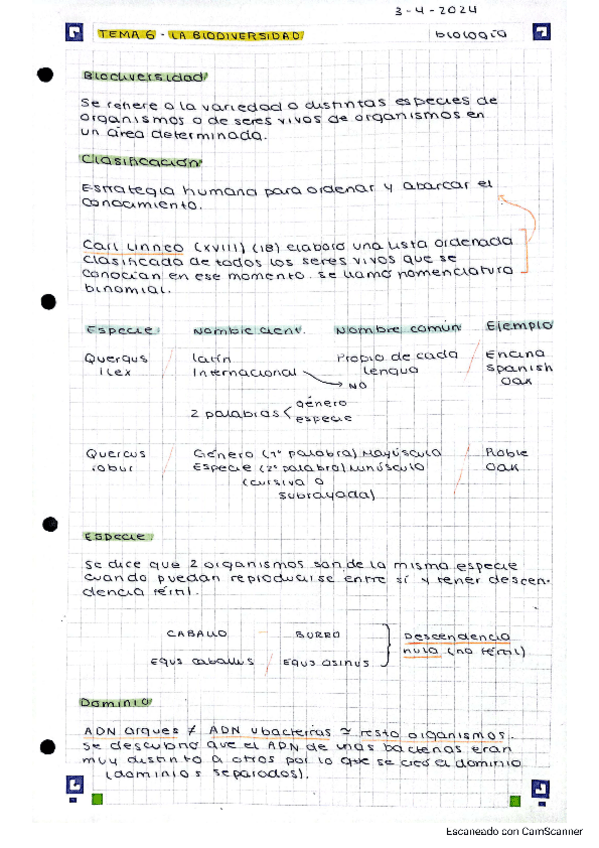 3-4-2024
TEMA 6 - LA BIODIVERSIDAD
biología
Biodiversidad
Se refiere a la variedad o distintas especies de
organismos o de seres vivos de organismos en
un área determinada.
Clasificación
Estrategia humana para ordenar y abarcar el
conocimiento.
Carl Linneo (XVIII) (18) elaboró una lista ordenada
clasificada de todos los seres vivos que se
conocían en ese momento. Se llamó nomenclatura
binomial.
Especie Nombre cient. Nombre común Ejemplo
Querqus / latín Propio de cada / Encina
ilex Internacional lengua Spanish
NO Oak
2 palabras < género
especie
Quercus / Género (1º palabra) Mayúscula / Roble
robur Especie (2º palabra) Minúscula Oak
(cursiva o
subrayada)
Especie
Se dice que 2 organismos son de la misma especie
cuando puedan reproducirse entre sí y tener descen-
dencia fértil.
CABALLO - BURRO Descendencia
Equs caballus / Equs asinus nula (no fértil)
Dominio
ADN arqueas ≠ ADN ubacterias ≈ resto organismos.
Se descubrió que el ADN de unas bacterias eran
muy distinto a otros por lo que se creó el dominio
(dominios separados).
Escaneado con CamScanner